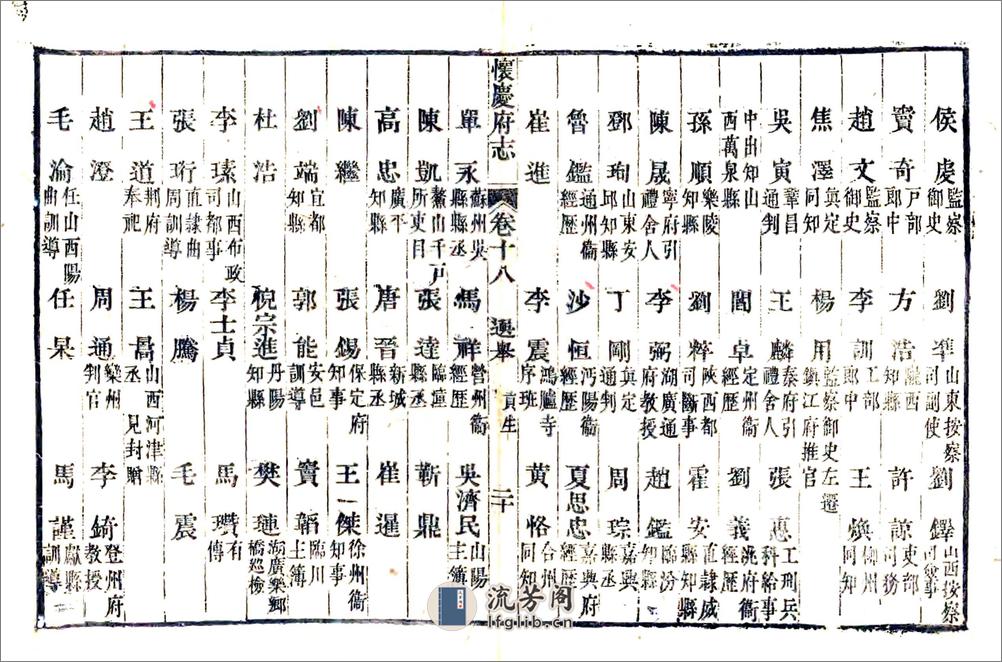 侯虔 監察御史 劉準 山東按察司副使 劉鐸 山西按察司僉事
竇奇 戶部郎中 方浩 隴西知縣 許諒 吏部司務
趙文 監察御史 李訓 工部郎中 王煥 同知
焦澤 真定同知 楊用 監察御史左遷鎮江府推官
吳寅 鞏昌通判 王麟 秦府引禮舍人 張惠 工刑兵科給事
中出知山西萬泉縣 閻卓 定州衞經歷 劉義 洮府衞經歷
孫順 樂陵知縣 劉粹 陝西都司斷事 霍安 直隸威縣知縣
陳晟 寧府引禮舍人 李弼 湖廣通府教授 趙鑑 臨汾知縣
鄧珣 山東安邱知縣 丁剛 真定通判 周琮 嘉興縣丞
魯鑑 通州衞經歷 沙恒 沔陽衞經歷 夏思忠 嘉興府經歷
崔進 李震 鴻臚寺序班 黃恪 合州同知
懷慶府志 卷十八 選舉 貢生 二十
單永 蘇州吳縣縣丞 馬祥 營州衞經歷 吳濟民 山陽主簿
陳凱 鰲山千戶所吏目 張達 臨潼縣丞 靳鼎
高忠 廣平知縣 唐晉 新城縣丞 崔暹
陳繼 張錫 保定府知事 王一傑 徐州衞知事
劉端 宜都知縣 郭能 安邑訓導 竇韜 臨川主簿
杜浩 倪宗進 丹陽知縣 樊璉 湖廣樂鄉橋巡檢
李瑧 山西布政司都事 李士貞 馬瓚 有傳
張珩 直隸曲周訓導 楊騰 毛震
王道 荊府奉祀 王昌 山西河津縣丞見封贈
趙澄 周通 欒州判官 李錡 登州府教授
毛淪 任山西陽曲訓導 任杲 馬謹 獻縣訓導
流芳阁
lfglib.cn